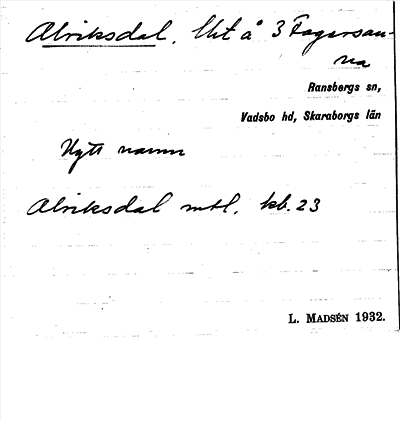 Alriksdal, lht å 3 Fagersan-
na
Ransbergs sn,
Vadsbo hd, Skaraborgs län
Nytt namn
Alriksdal mtl, kb. 23
L. MADSÉN 1932.